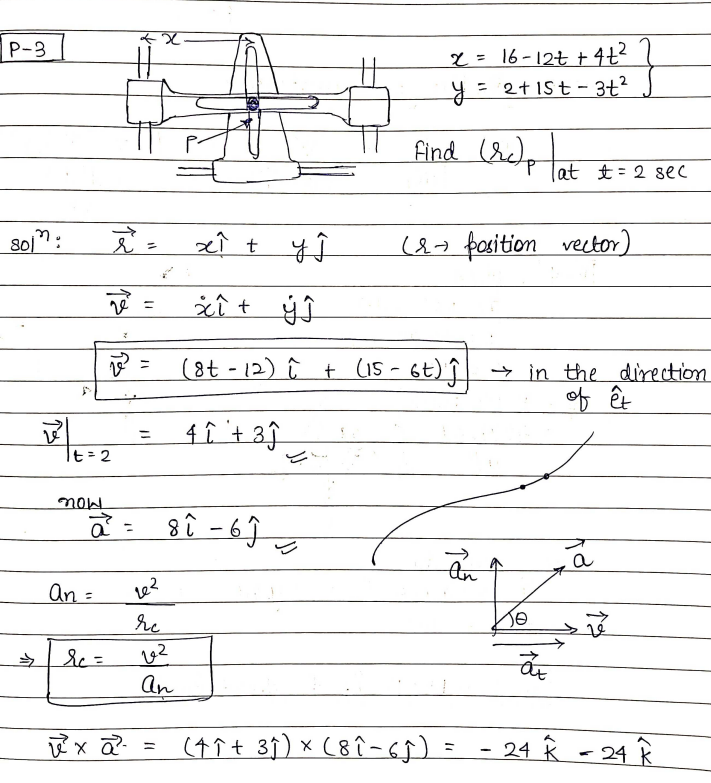 P-3
x
P
x = 16-12t + 4t²
y = 2+15t - 3t²
find (rc)p | at t = 2 sec
solⁿ: r⃗ = xî + yĵ (r → position vector)
v⃗ = ẋî + ẏĵ
v⃗ = (8t - 12) î + (15 - 6t) ĵ → in the direction
of êt
v⃗|t=2 = 4î + 3ĵ
now
a⃗ = 8î - 6ĵ
an = v²/rc
⇒ rc = v²/an
a⃗n a⃗ θ v⃗
a⃗t
v⃗ x a⃗ = (4î + 3ĵ) × (8î - 6ĵ) = - 24 k̂ - 24 k̂